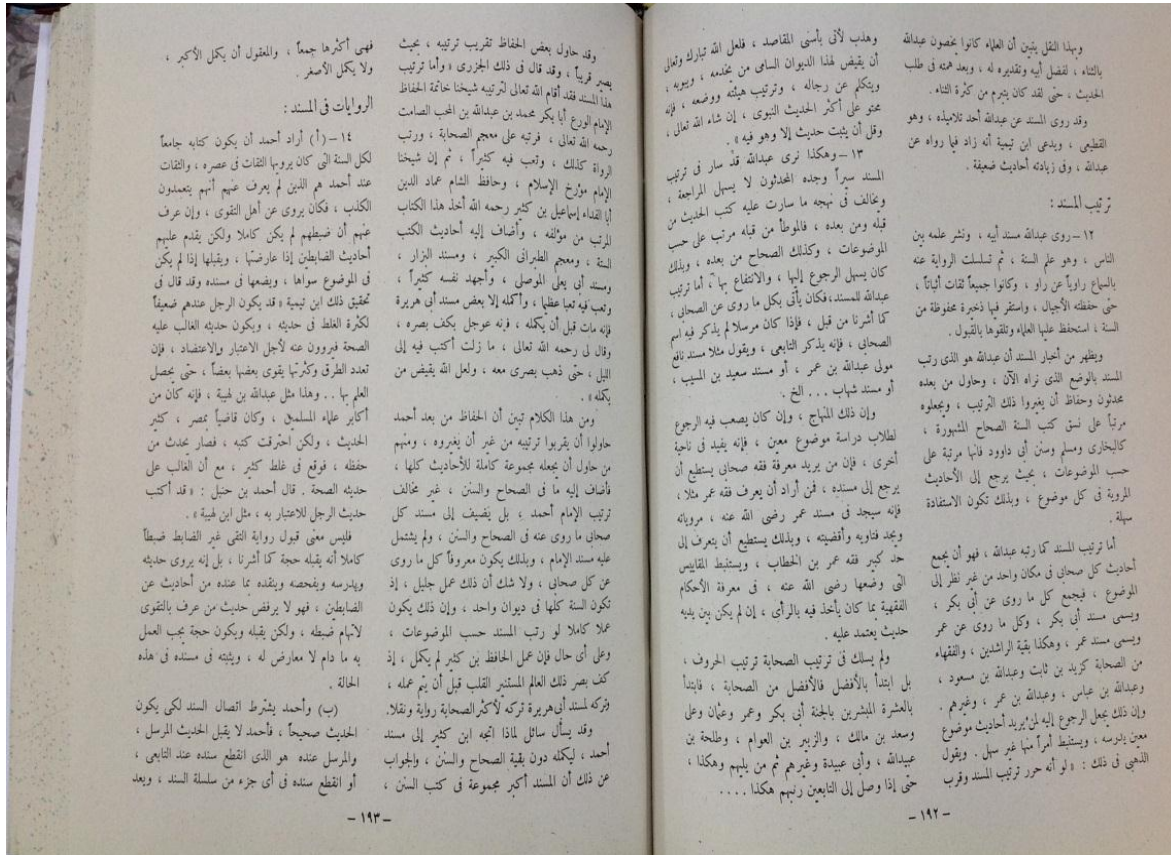 وبهذا النقل يتبين أن العلماء كانوا يخصون عبدالله
بالثناء ، لفضل أبيه وتقديره له ، وبعد همته فى طلب
الحديث ، حتى لقد كان يتبرم من كثرة الثناء .
وقد روى المسند عن عبدالله أحد تلاميذه ، وهو
القطيعى ، ويدعى ابن تيمية أنه زاد فيما رواه عن
عبدالله ، وفى زيادته أحاديث ضعيفة .
ترتيب المسند :
١٢ – روى عبدالله مسند أبيه ، ونشر علمه بين
الناس ، وهو علم السنة ، ثم تسلسلت الرواية عنه
بالسماع راوياً عن راو ، وكانوا جميعاً ثقات أثباتاً ،
حتى حفظته الأجيال ، واستقر فيها ذخيرة محفوظة من
السنة ، استحفظ عليها العلماء وتلقوها بالقبول .
ويظهر من أخبار المسند أن عبدالله هو الذى رتب
المسند بالوضع الذى نراه الآن ، وحاول من بعده
محدثون وحفاظ أن يغيروا ذلك الترتيب ، ويجعلوه
مرتباً على نسق كتب السنة الصحاح المشهورة ،
كالبخارى ومسلم وسنن أبى داوود فانها مرتبة على
حسب الموضوعات ، بحيث يرجع إلى الأحاديث
المروية فى كل موضوع ، وبذلك تكون الاستفادة
سهلة .
أما ترتيب المسند كما رتبه عبدالله ، فهو أن يجمع
أحاديث كل صحابى فى مكان واحد من غير نظر إلى
الموضوع ، فيجمع كل ما روى عن أبى بكر ،
ويسمى مسند أبى بكر ، وكل ما روى عن عمر
ويسمى مسند عمر ، وهكذا بقية الراشدين ، والفقهاء
من الصحابة كزيد بن ثابت وعبدالله بن مسعود ،
وعبدالله بن عباس ، وعبدالله بن عمر ، وغيرهم .
وإن ذلك يجعل الرجوع إليه لمن يريد أحاديث موضوع
معين يدرسه ، ويستنبط أمراً منها غير سهل . ويقول
الذهبى فى ذلك : « لو أنه حرر ترتيب المسند وقرب
وهذب لأتى بأسنى المقاصد ، فلعل الله تبارك وتعالى
أن يقيض لهذا الديوان السامى من يخدمه ، ويبوبه ،
ويتكلم عن رجاله ، وترتيب هيئته ووضعه ، فإنه
محتو على أكثر الحديث النبوى ، إن شاء الله تعالى ،
وقل أن يثبت حديث إلا وهو فيه » .
١٣ – وهكذا نرى عبدالله قد سار فى ترتيب
المسند سيراً وجده المحدثون لا يسهل المراجعة ،
ويخالف فى نهجه ما سارت عليه كتب الحديث من
قبله ومن بعده ، فالموطأ من قبله مرتب على حسب
الموضوعات ، وكذلك الصحاح من بعده ، وبذلك
كان يسهل الرجوع إليها ، والانتفاع بها ، أما ترتيب
عبدالله للمسند ، فكان يأتى بكل ما روى عن الصحابى ،
كما أشرنا من قبل ، فإذا كان مرسلا لم يذكر فيه اسم
الصحابى ، فإنه يذكر التابعى ، ويقول مثلا مسند نافع
مولى عبدالله بن عمر ، أو مسند سعيد بن المسيب ،
أو مسند شهاب . . . الخ .
وإن ذلك المنهاج ، وإن كان يصعب فيه الرجوع
لطلاب دراسة موضوع معين ، فإنه يفيد فى ناحية
أخرى ، فإن من يريد معرفة فقه صحابى يستطيع أن
يرجع إلى مسنده ، فمن أراد أن يعرف فقه عمر مثلا ،
فإنه سيجد فى مسند عمر رضى الله عنه ، مروياته
ويجد فتاويه وأقضيته ، وبذلك يستطيع أن يتعرف إلى
حد كبير فقه عمر بن الخطاب ، ويستنبط المقاييس
التى وضعها رضى الله عنه ، فى معرفة الأحكام
الفقهية بما كان يأخذ فيه بالرأى ، إن لم يكن بين يديه
حديث يعتمد عليه .
ولم يسلك فى ترتيب الصحابة ترتيب الحروف ،
بل ابتدأ بالأفضل فالأفضل من الصحابة ، فابتدأ
بالعشرة المبشرين بالجنة أبى بكر وعمر وعثمان وعلى
وسعد بن مالك ، والزبير بن العوام ، وطلحة بن
عبيدالله ، وأبى عبيدة وغيرهم ثم من يليهم وهكذا ،
حتى إذا وصل إلى التابعين رتبهم هكذا . . . .
– ١٩٢ –
وقد حاول بعض الحفاظ تقريب ترتيبه ، بحيث
يصير قريباً ، وقد قال فى ذلك الجزرى « وأما ترتيب
هذا المسند فقد أقام الله تعالى لترتيبه شيخنا خاتمة الحفاظ
الإمام الورع أبا بكر محمد بن عبدالله بن المحب الصامت
رحمه الله تعالى ، فرتبه على معجم الصحابة ، ورتب
الرواة كذلك ، وتعب فيه كثيراً ، ثم إن شيخنا
الإمام مؤرخ الإسلام ، وحافظ الشام عماد الدين
أبا الفداء إسماعيل بن كثير رحمه الله أخذ هذا الكتاب
المرتب من مؤلفه ، وأضاف إليه أحاديث الكتب
الستة ، ومعجم الطبرانى الكبير ، ومسند البزار ،
ومسند أبى يعلى الموصلى ، وأجهد نفسه كثيراً ،
وتعب فيه تعبا عظيما ، وأكمله إلا بعض مسند أبى هريرة
فإنه مات قبل أن يكمله ، فإنه عوجل بكف بصره ،
وقال لى رحمه الله تعالى ، ما زلت أكتب فيه إلى
الليل ، حتى ذهب بصرى معه ، ولعل الله يقيض من
يكمله » .
ومن هذا الكلام تبين أن الحفاظ من بعد أحمد
حاولوا أن يقربوا ترتيبه من غير أن يغيروه ، ومنهم
من حاول أن يجعله مجموعة كاملة للأحاديث كلها ،
فأضاف إليه ما فى الصحاح والسنن ، غير مخالف
ترتيب الإمام أحمد ، بل يضيف إلى مسند كل
صحابى ما روى عنه فى الصحاح والسنن ، ولم يشتمل
عليه مسند الإمام ، وبذلك يكون معروفاً كل ما روى
عن كل صحابى ، ولا شك أن ذلك عمل جليل ، إذ
تكون السنة كلها فى ديوان واحد ، وإن ذلك يكون
عملا كاملا لو رتب المسند حسب الموضوعات ،
وعلى أى حال فإن عمل الحافظ بن كثير لم يكمل ، إذ
كف بصر ذلك العالم المستنير القلب قبل أن يتم عمله ،
وتركه لمسند أبى هريرة تركه لأكثر الصحابة رواية ونقلا.
وقد يسأل سائل لماذا اتجه ابن كثير إلى مسند
أحمد ، ليكمله دون بقية الصحاح والسنن ، والجواب
عن ذلك أن المسند أكبر مجموعة فى كتب السنن ،
فهى أكثرها جمعاً ، والمعقول أن يكمل الأكبر ،
ولا يكمل الأصغر .
الروايات فى المسند :
١٤ – (أ) أراد أحمد أن يكون كتابه جامعاً
لكل السنة التى كان يرويها الثقات فى عصره ، والثقات
عند أحمد هم الذين لم يعرف عنهم أنهم يتعمدون
الكذب ، فكان يروى عن أهل التقوى ، وإن عرف
عنهم أن ضبطهم لم يكن كاملا ولكن يقدم عليهم
أحاديث الضابطين إذا عارضتها ، ويقبلها إذا لم يكن
فى الموضوع سواها ، ويضعها فى مسنده وقد قال فى
تحقيق ذلك ابن تيمية « قد يكون الرجل عندهم ضعيفاً
لكثرة الغلط فى حديثه ، ويكون حديثه الغالب عليه
الصحة فيروون عنه لأجل الاعتبار والاعتضاد ، فإن
تعدد الطرق وكثرتها يقوى بعضها بعضاً ، حتى يحصل
العلم بها . . وهذا مثل عبدالله بن لهيعة ، فإنه كان من
أكابر علماء المسلمين ، وكان قاضياً بمصر ، كثير
الحديث ، ولكن احترقت كتبه ، فصار يحدث من
حفظه ، فوقع فى غلط كثير ، مع أن الغالب على
حديثه الصحة . قال أحمد بن حنبل : « قد أكتب
حديث الرجل للاعتبار به ، مثل ابن لهيعة » .
فليس معنى قبول رواية التقى غير الضابط ضبطاً
كاملا أنه يقبله حجة كما أشرنا ، بل إنه يروى حديثه
ويدرسه ويفحصه وينقده بما عنده من أحاديث عن
الضابطين ، فهو لا يرفض حديث من عرف بالتقوى
لاتهام ضبطه ، ولكن يقبله ويكون حجة يجب العمل
به ما دام لا معارض له ، ويثبته فى مسنده فى هذه
الحالة .
(ب) وأحمد يشترط اتصال السند لكى يكون
الحديث صحيحاً ، فأحمد لا يقبل الحديث المرسل ،
والمرسل عنده هو الذى انقطع سنده عند التابعى ،
أو انقطع سنده فى أى جزء من سلسلة السند ، وبعد
– ١٩٣ –